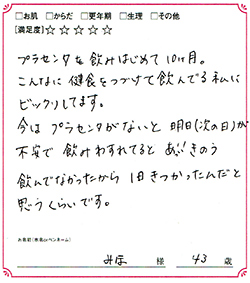 □お肌 □からだ □更年期 □生理 □その他
[満足度]☆☆☆☆☆
プラセンタを飲みはじめて10ヶ月。
こんなに健食をつづけて飲んでる私に
ビックリしてます。
今はプラセンタがないと明日(次の日)が
不安で飲みわすれてると あ〜!きのう
飲んでなかったから1日きつかったんだと
思うくらいです。
お名前(本名orペンネーム)
みほ 様 43 歳